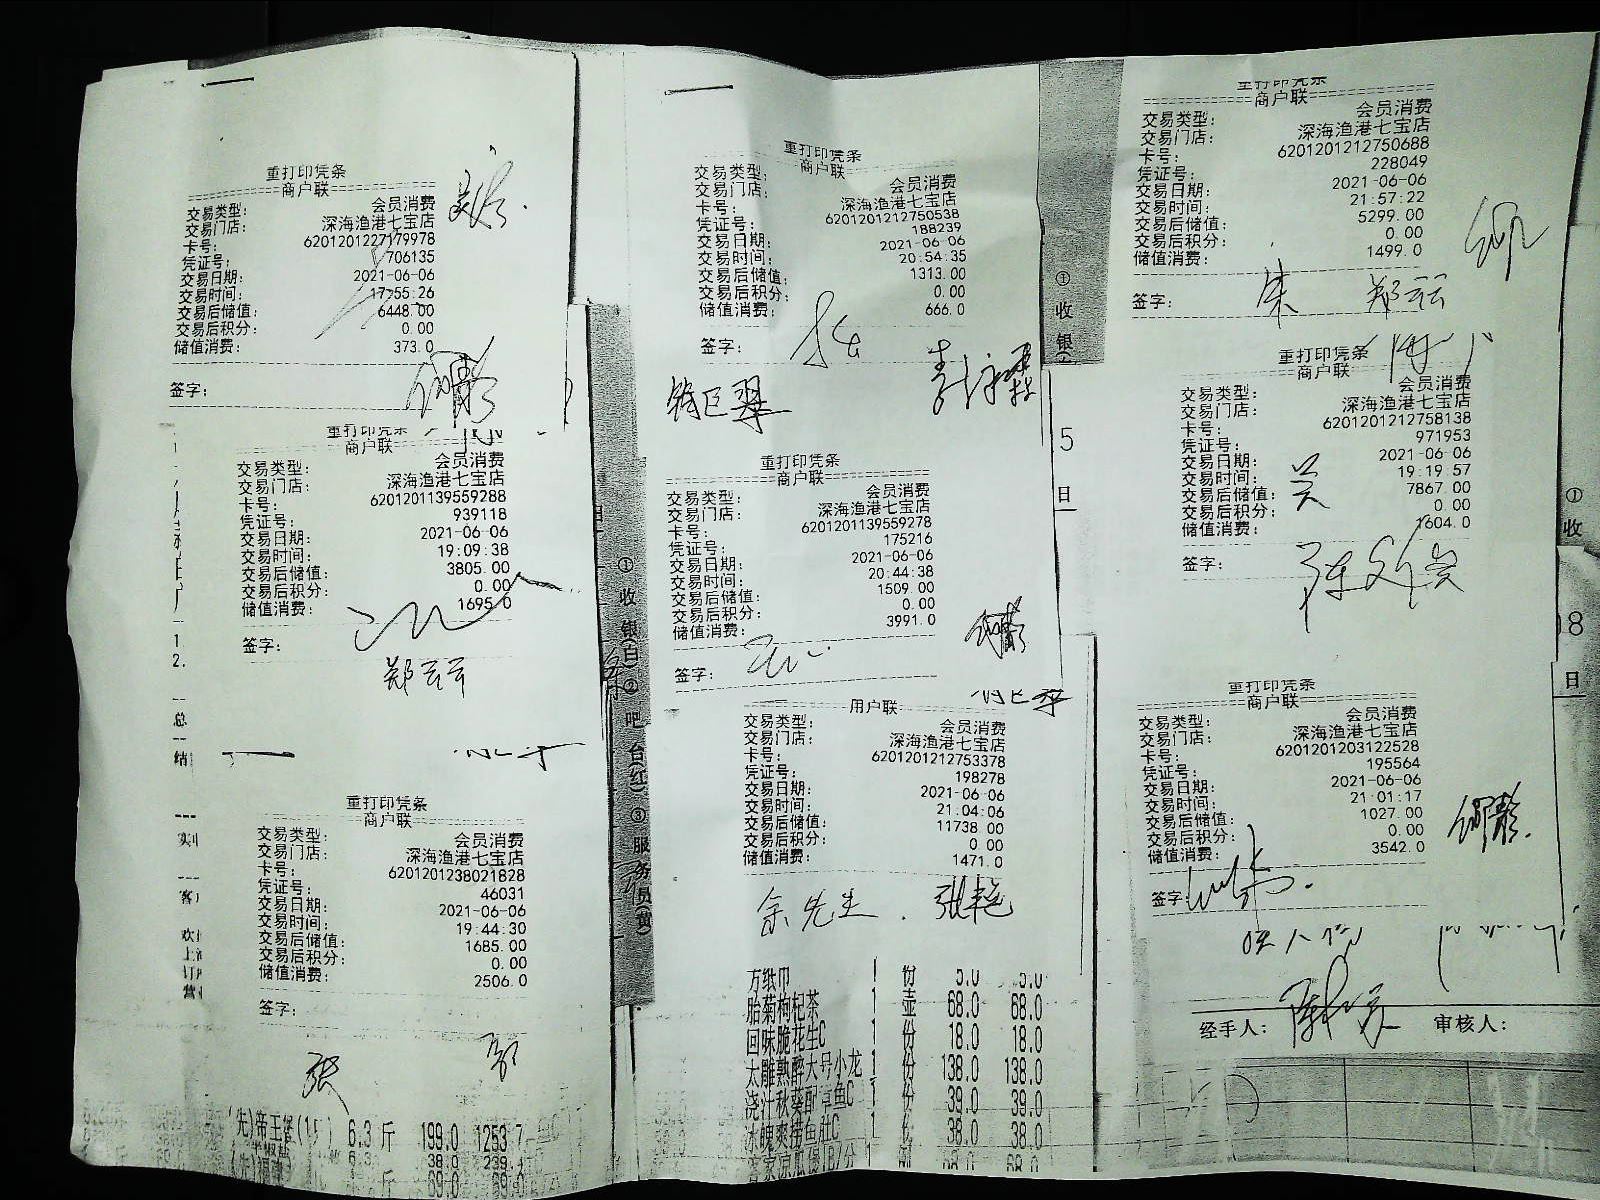 重打印凭条
商户联
交易类型： 会员消费
交易门店： 深海渔港七宝店
卡号： 6201201227179978
凭证号： 706135
交易日期： 2021-06-06
交易时间： 17:55:26
交易后储值： 6448.00
交易后积分： 0.00
储值消费： 373.0
签字：
重打印凭条
商户联
交易类型： 会员消费
交易门店： 深海渔港七宝店
卡号： 6201201139559288
凭证号： 939118
交易日期： 2021-06-06
交易时间： 19:09:38
交易后储值： 3805.00
交易后积分： 0.00
储值消费： 1695.0
签字：
郑云云
重打印凭条
商户联
交易类型： 会员消费
交易门店： 深海渔港七宝店
卡号： 6201201238021828
凭证号： 46031
交易日期： 2021-06-06
交易时间： 19:44:30
交易后储值： 1685.00
交易后积分： 0.00
储值消费： 2506.0
签字：
张 郭
(先)帝王蟹 6.3 斤 199.0 1253.7
重打印凭条
商户联
交易类型： 会员消费
交易门店： 深海渔港七宝店
卡号： 6201201212750538
凭证号： 188239
交易日期： 2021-06-06
交易时间： 20:54:35
交易后储值： 1313.00
交易后积分： 0.00
储值消费： 666.0
签字：
重打印凭条
商户联
交易类型： 会员消费
交易门店： 深海渔港七宝店
卡号： 6201201139559278
凭证号： 175216
交易日期： 2021-06-06
交易时间： 20:44:38
交易后储值： 1509.00
交易后积分： 0.00
储值消费： 3991.0
签字：
用户联
交易类型： 会员消费
交易门店： 深海渔港七宝店
卡号： 6201201212753378
凭证号： 198278
交易日期： 2021-06-06
交易时间： 21:04:06
交易后储值： 11738.00
交易后积分： 0.00
储值消费： 1471.0
余先生 . 张艳
方纸巾 1 份 5.0 5.0
胎菊枸杞茶 1 壶 68.0 68.0
回味脆花生C 1 份 18.0 18.0
太雕熟醉大号小龙 1 份 138.0 138.0
浇汁秋葵配章鱼C 1 份 39.0 39.0
冰魄爽捞鱼肚C 1 份 38.0 38.0
①收银(白)②吧台(红)③服务员(黄)
重打印凭条
商户联
交易类型： 会员消费
交易门店： 深海渔港七宝店
卡号： 6201201212750688
凭证号： 228049
交易日期： 2021-06-06
交易时间： 21:57:22
交易后储值： 5299.00
交易后积分： 0.00
储值消费： 1499.0
签字： 朱 郑云云
重打印凭条
商户联
交易类型： 会员消费
交易门店： 深海渔港七宝店
卡号： 6201201212758138
凭证号： 971953
交易日期： 2021-06-06
交易时间： 19:19:57
交易后储值： 7867.00
交易后积分： 0.00
储值消费： 1604.0
签字：
吴
重打印凭条
商户联
交易类型： 会员消费
交易门店： 深海渔港七宝店
卡号： 6201201203122528
凭证号： 195564
交易日期： 2021-06-06
交易时间： 21:01:17
交易后储值： 1027.00
交易后积分： 0.00
储值消费： 3542.0
签字：
经手人： 审核人：
①收银
5
日
①收
18
日